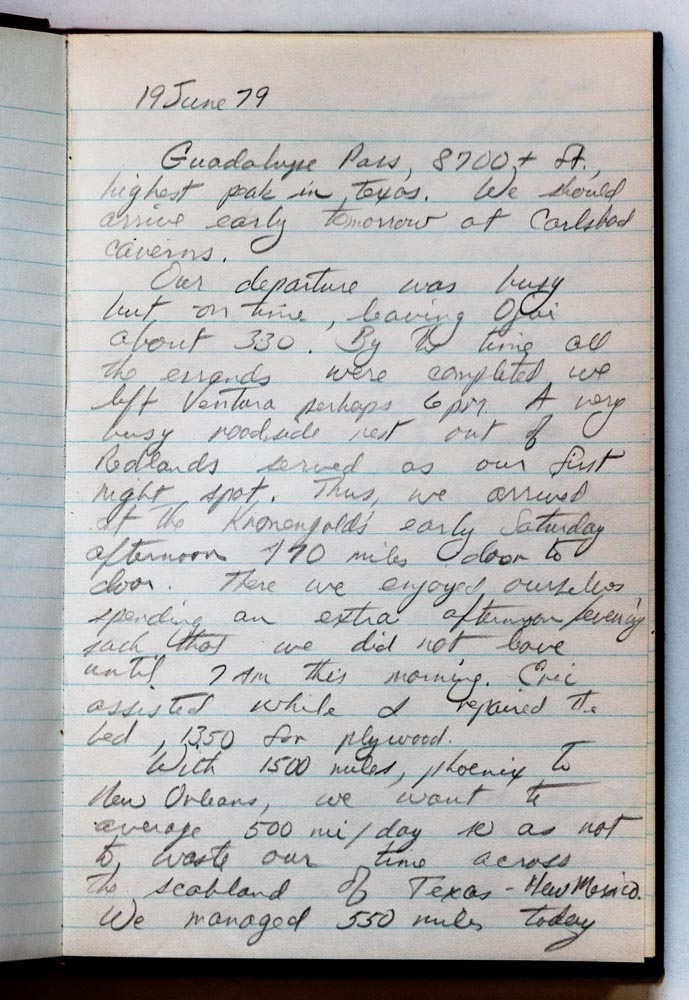 19 June 79
Guadalupe Pass, 8700+ ft,
highest peak in Texas. We should
arrive early tomorrow at Carlsbad
caverns.
Our departure was busy
but on time, leaving Ojai
about 330. By the time all
the errands were completed we
left Ventura perhaps 6 pm. A very
busy roadside rest out of
Redlands served as our first
night spot. Thus, we arrived
at the Kronengold's early Saturday
afternoon 470 miles door to
door. There we enjoyed ourselves
spending an extra afternoon/evening
such that we did not leave
until 7 Am this morning. Eric
assisted while I repaired the
bed, 1350 for plywood.
With 1500 miles, phoenix to
New Orleans, we want to
average 500 mi/day so as not
to waste our time across
the scabland of Texas - New Mexico.
We managed 550 miles today